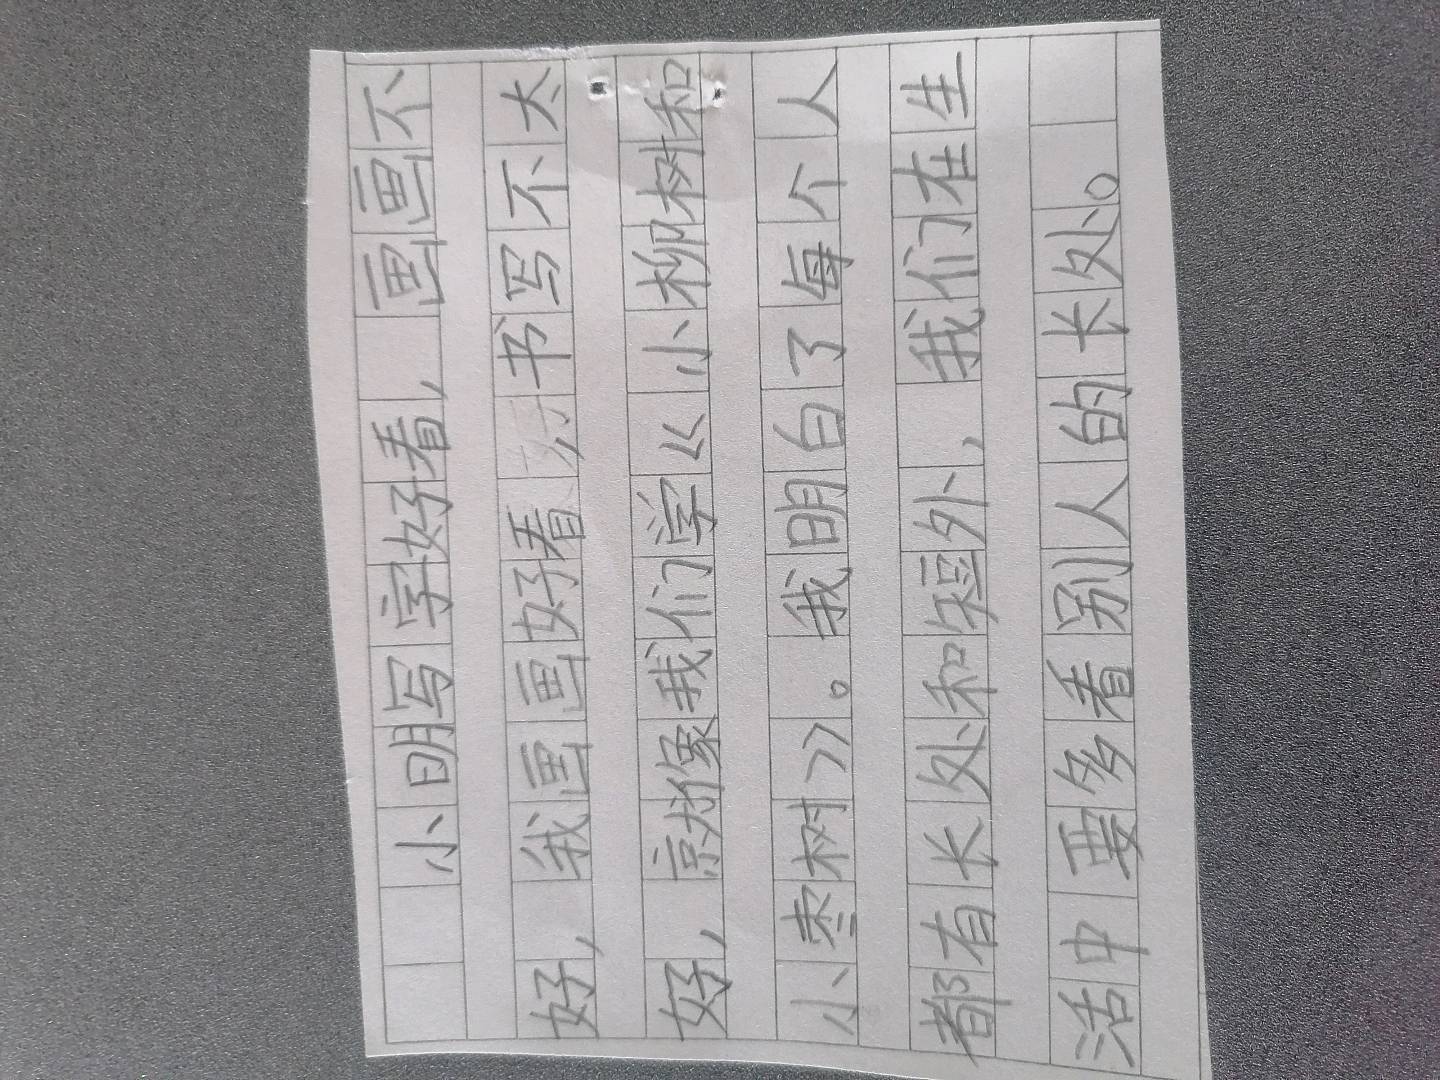 小明写字好看，画画不
好，我画画好看书写不太
好，就像我们学《小柳树和
小枣树》。我明白了每个人
都有长处和短外，我们在生
活中要多看别人的长处。